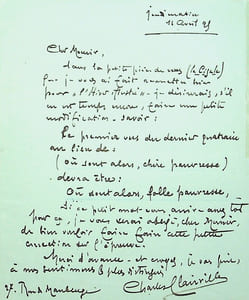 Jeudi matin
11 Avril 95
Cher Monsieur,
dans la petite pièce de vers (la Cigale)
que je vous ai fait remettre hier
pour l'Hiver, je désirerais, s'il
en est temps encore, faire une petite
modification - savoir :
Le premier vers du dernier quatrain
au lieu de :
(où sont alors, chère pauvresse)
devra être :
Où sont alors, folle pauvresse,
Si ce petit mot vous arrive assez tôt
pour ça, je vous serai obligé, cher Monsieur
de bien vouloir faire faire cette petite
correction sur l'épreuve.
Merci d'avance - et croyez, je vous prie,
à mes sentiments les plus distingués
Charles Clairville
37. Rue de Maubeuge